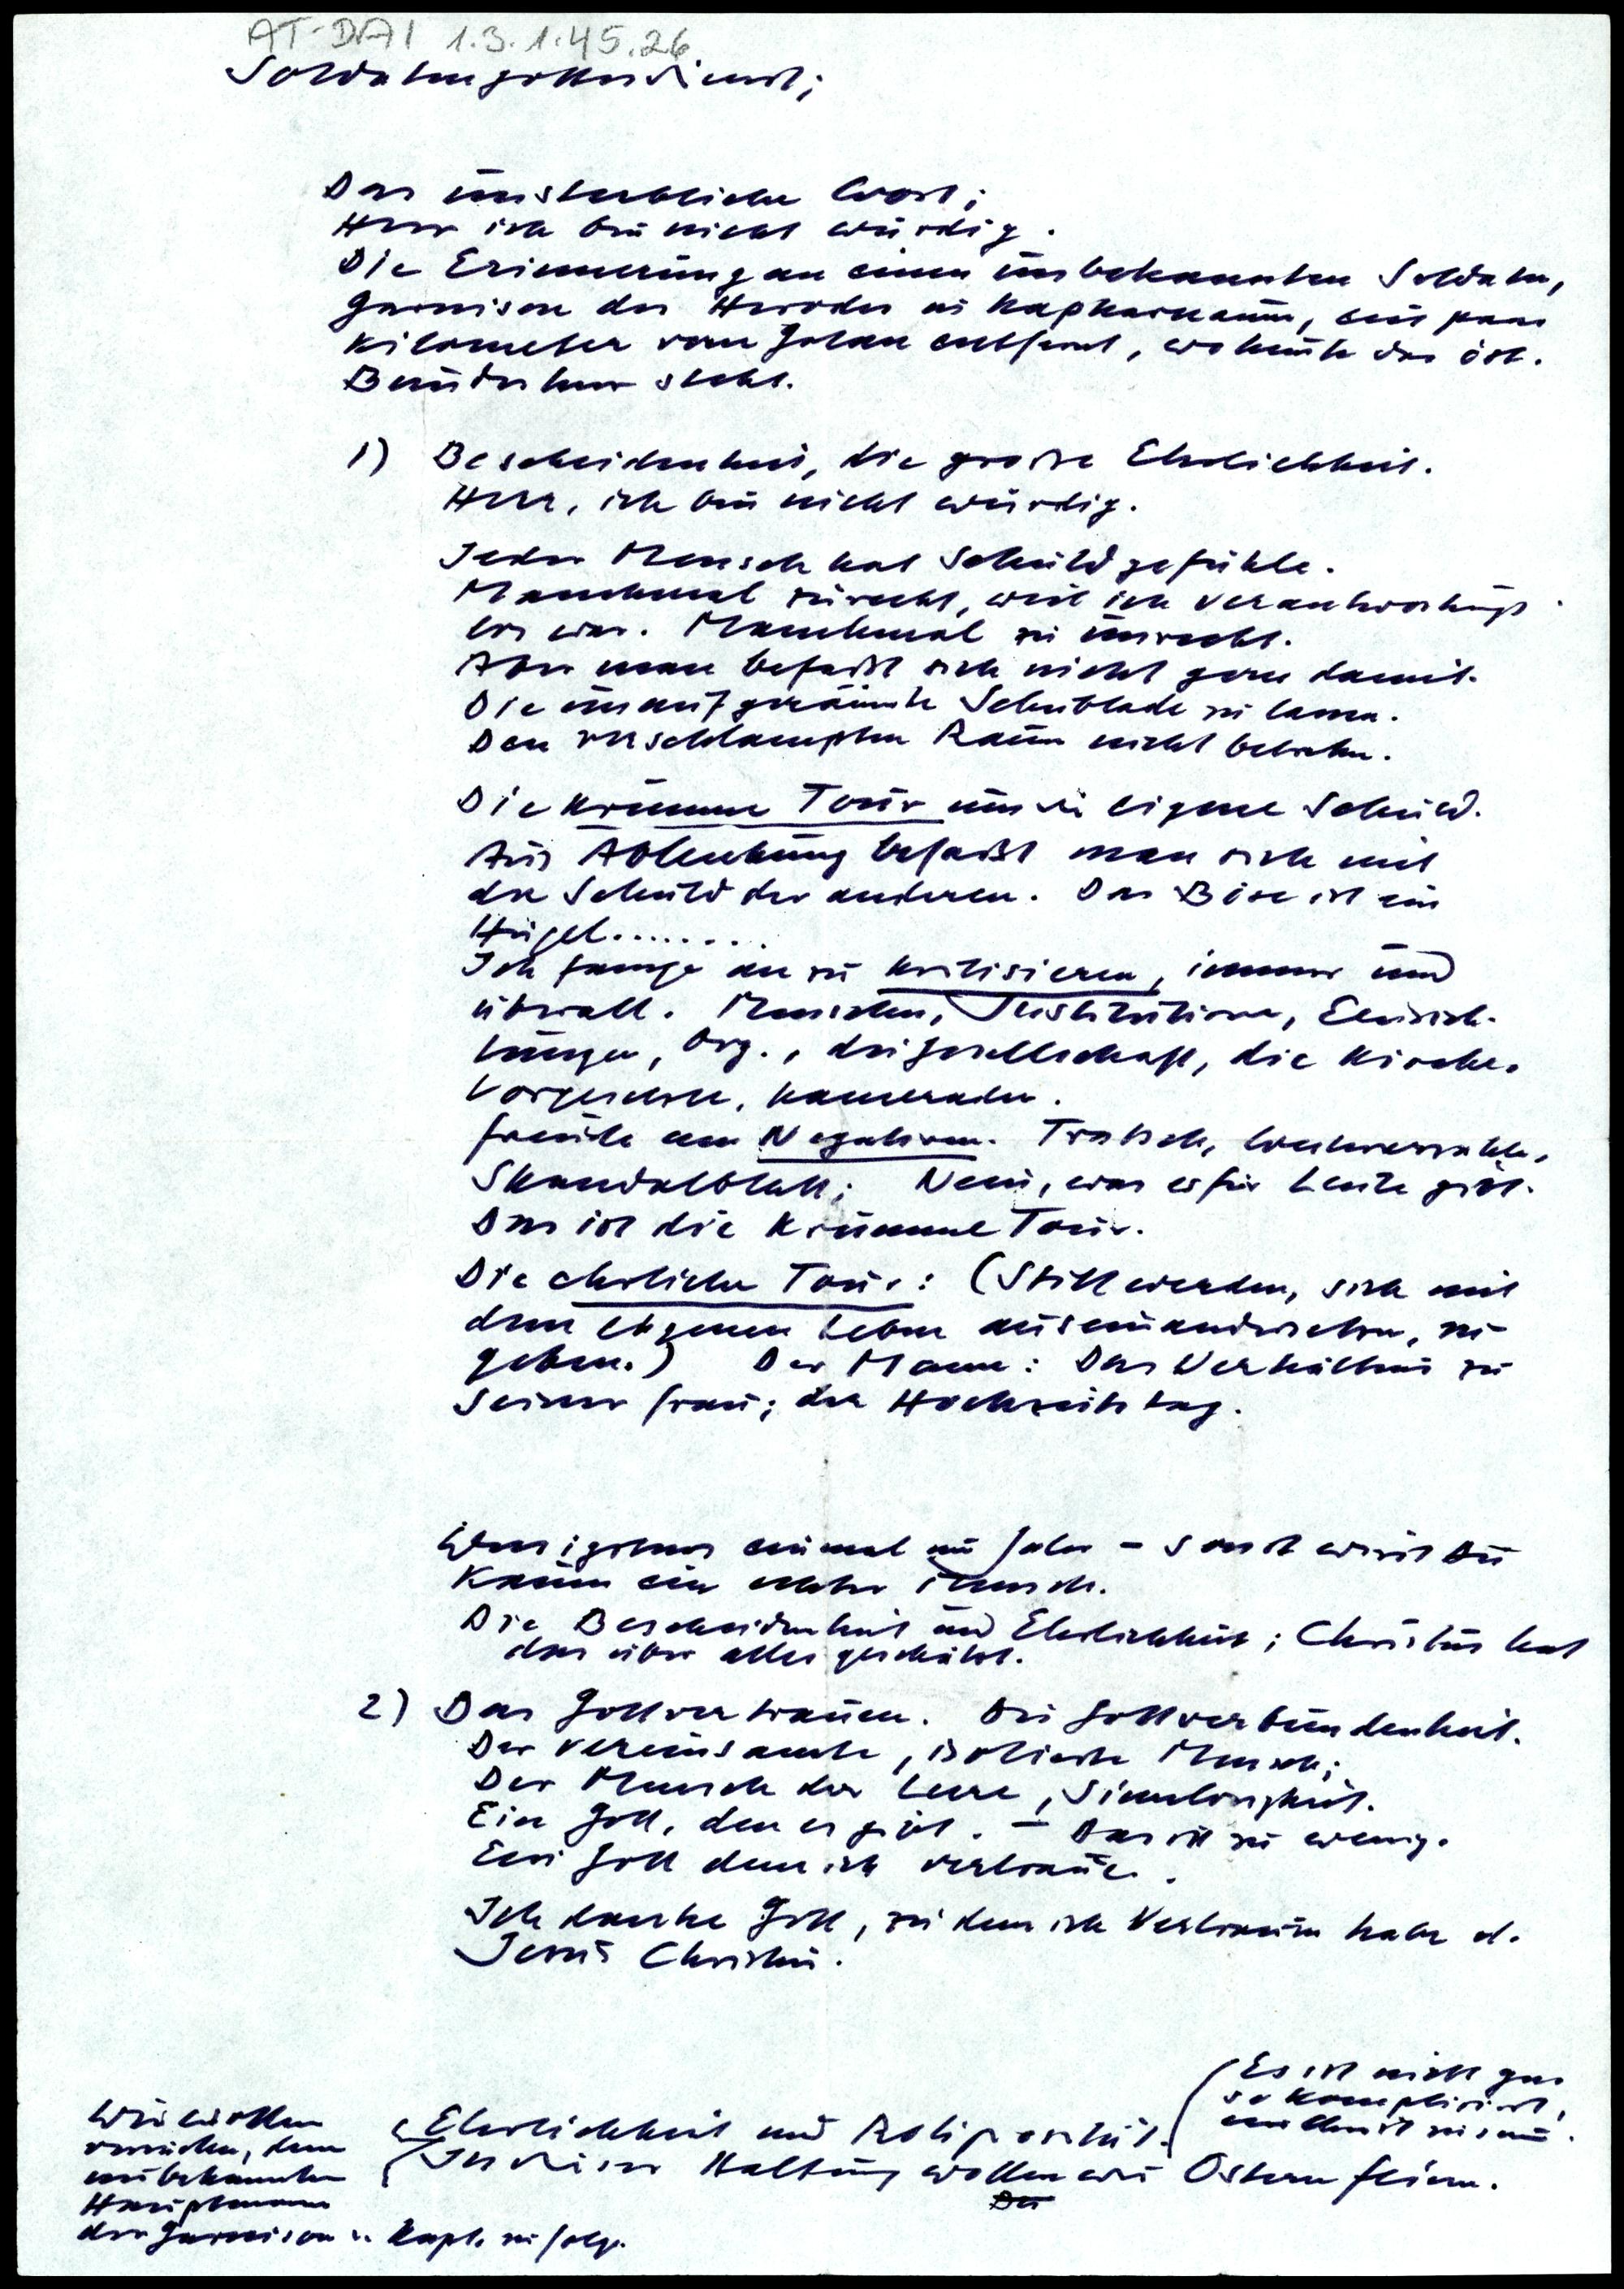 AT-DAI 1.3.1.45.26
Soldatengottesdienst;
Das unsterbliche Wort;
Herr ich bin nicht würdig.
Die Erinnerung an einen unbekannten Soldaten,
Garnison des Herodes in Kapharnaum, ein paar
Kilometer vom Golan entfernt, wo heute das öst.
Bundesheer steht.
1) Bescheidenheit, die große Ehrlichkeit.
Herr, ich bin nicht würdig.
Jeder Mensch hat Schuldgefühle.
Manchmal zurecht, weil ich verantwortungs
los war. Manchmal zu unrecht.
Aber man befaßt sich nicht gern damit.
Die unaufgeräumte Schublade zu lassen.
Den verschlampten Raum nicht betreten.
Die krumme Tour um die eigene Schuld.
Aus Ablenkung befaßt man sich mit
der Schuld der anderen. Das Böse ist ein
Hügel........
Ich fange an zu kritisieren, immer und
überall. Menschen, Institutionen, Einrich-
tungen, Org., die Gesellschaft, die Kirche.
Vorgesetzte, Kameraden.
Freude am Negativen. Tratsch, Weitererzählen,
Skandalblatt; Nein, was es für Leute gibt.
Das ist die krumme Tour.
Die ehrliche Tour: (Still werden, sich mit
dem eigenen Leben auseinandersetzen, zu-
geben.) Der Mann: Das Verhältnis zu
seiner Frau; der Hochzeitstag.
Wenigstens einmal im Jahr - sonst wirst Du
kaum ein echter Mensch.
Die Bescheidenheit und Ehrlichkeit; Christus hat
das über alles geschätzt.
2) Das Gottvertrauen. Die Gottverbundenheit.
Der vereinsamte, isolierte Mensch;
Der Mensch der Leere, Sinnlosigkeit.
Ein Gott, den es gibt. - Das ist zu wenig.
Ein Gott dem ich vertraue.
Ich danke Gott, zu dem ich Vertrauen habe d.
Jesus Christus.
(Es ist nicht gar
so kompliziert,
ein Christ zu sein.
Ehrlichkeit und Religiosität.
In dieser Haltung wollen wir Ostern feiern.
Wir wollen
versuchen, dem
unbekannten
Hauptmann
der Garnison v. Kaph. zu folgen.